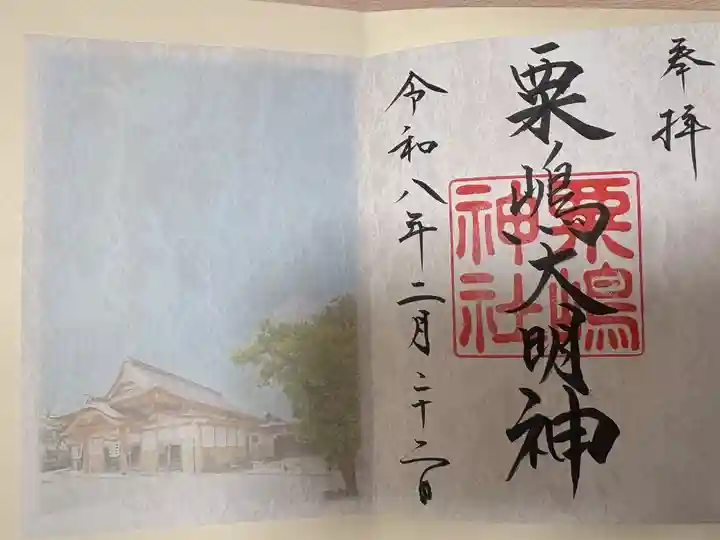 奉拝
粟嶋大明神
粟嶋神社
令和八年二月二十二日